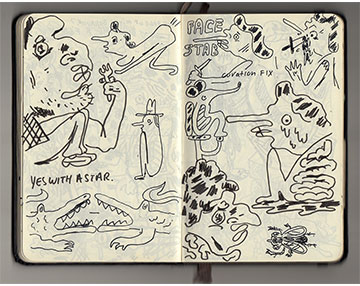 YES WITH A STAR.
FACE
STAB'S
curation FIX